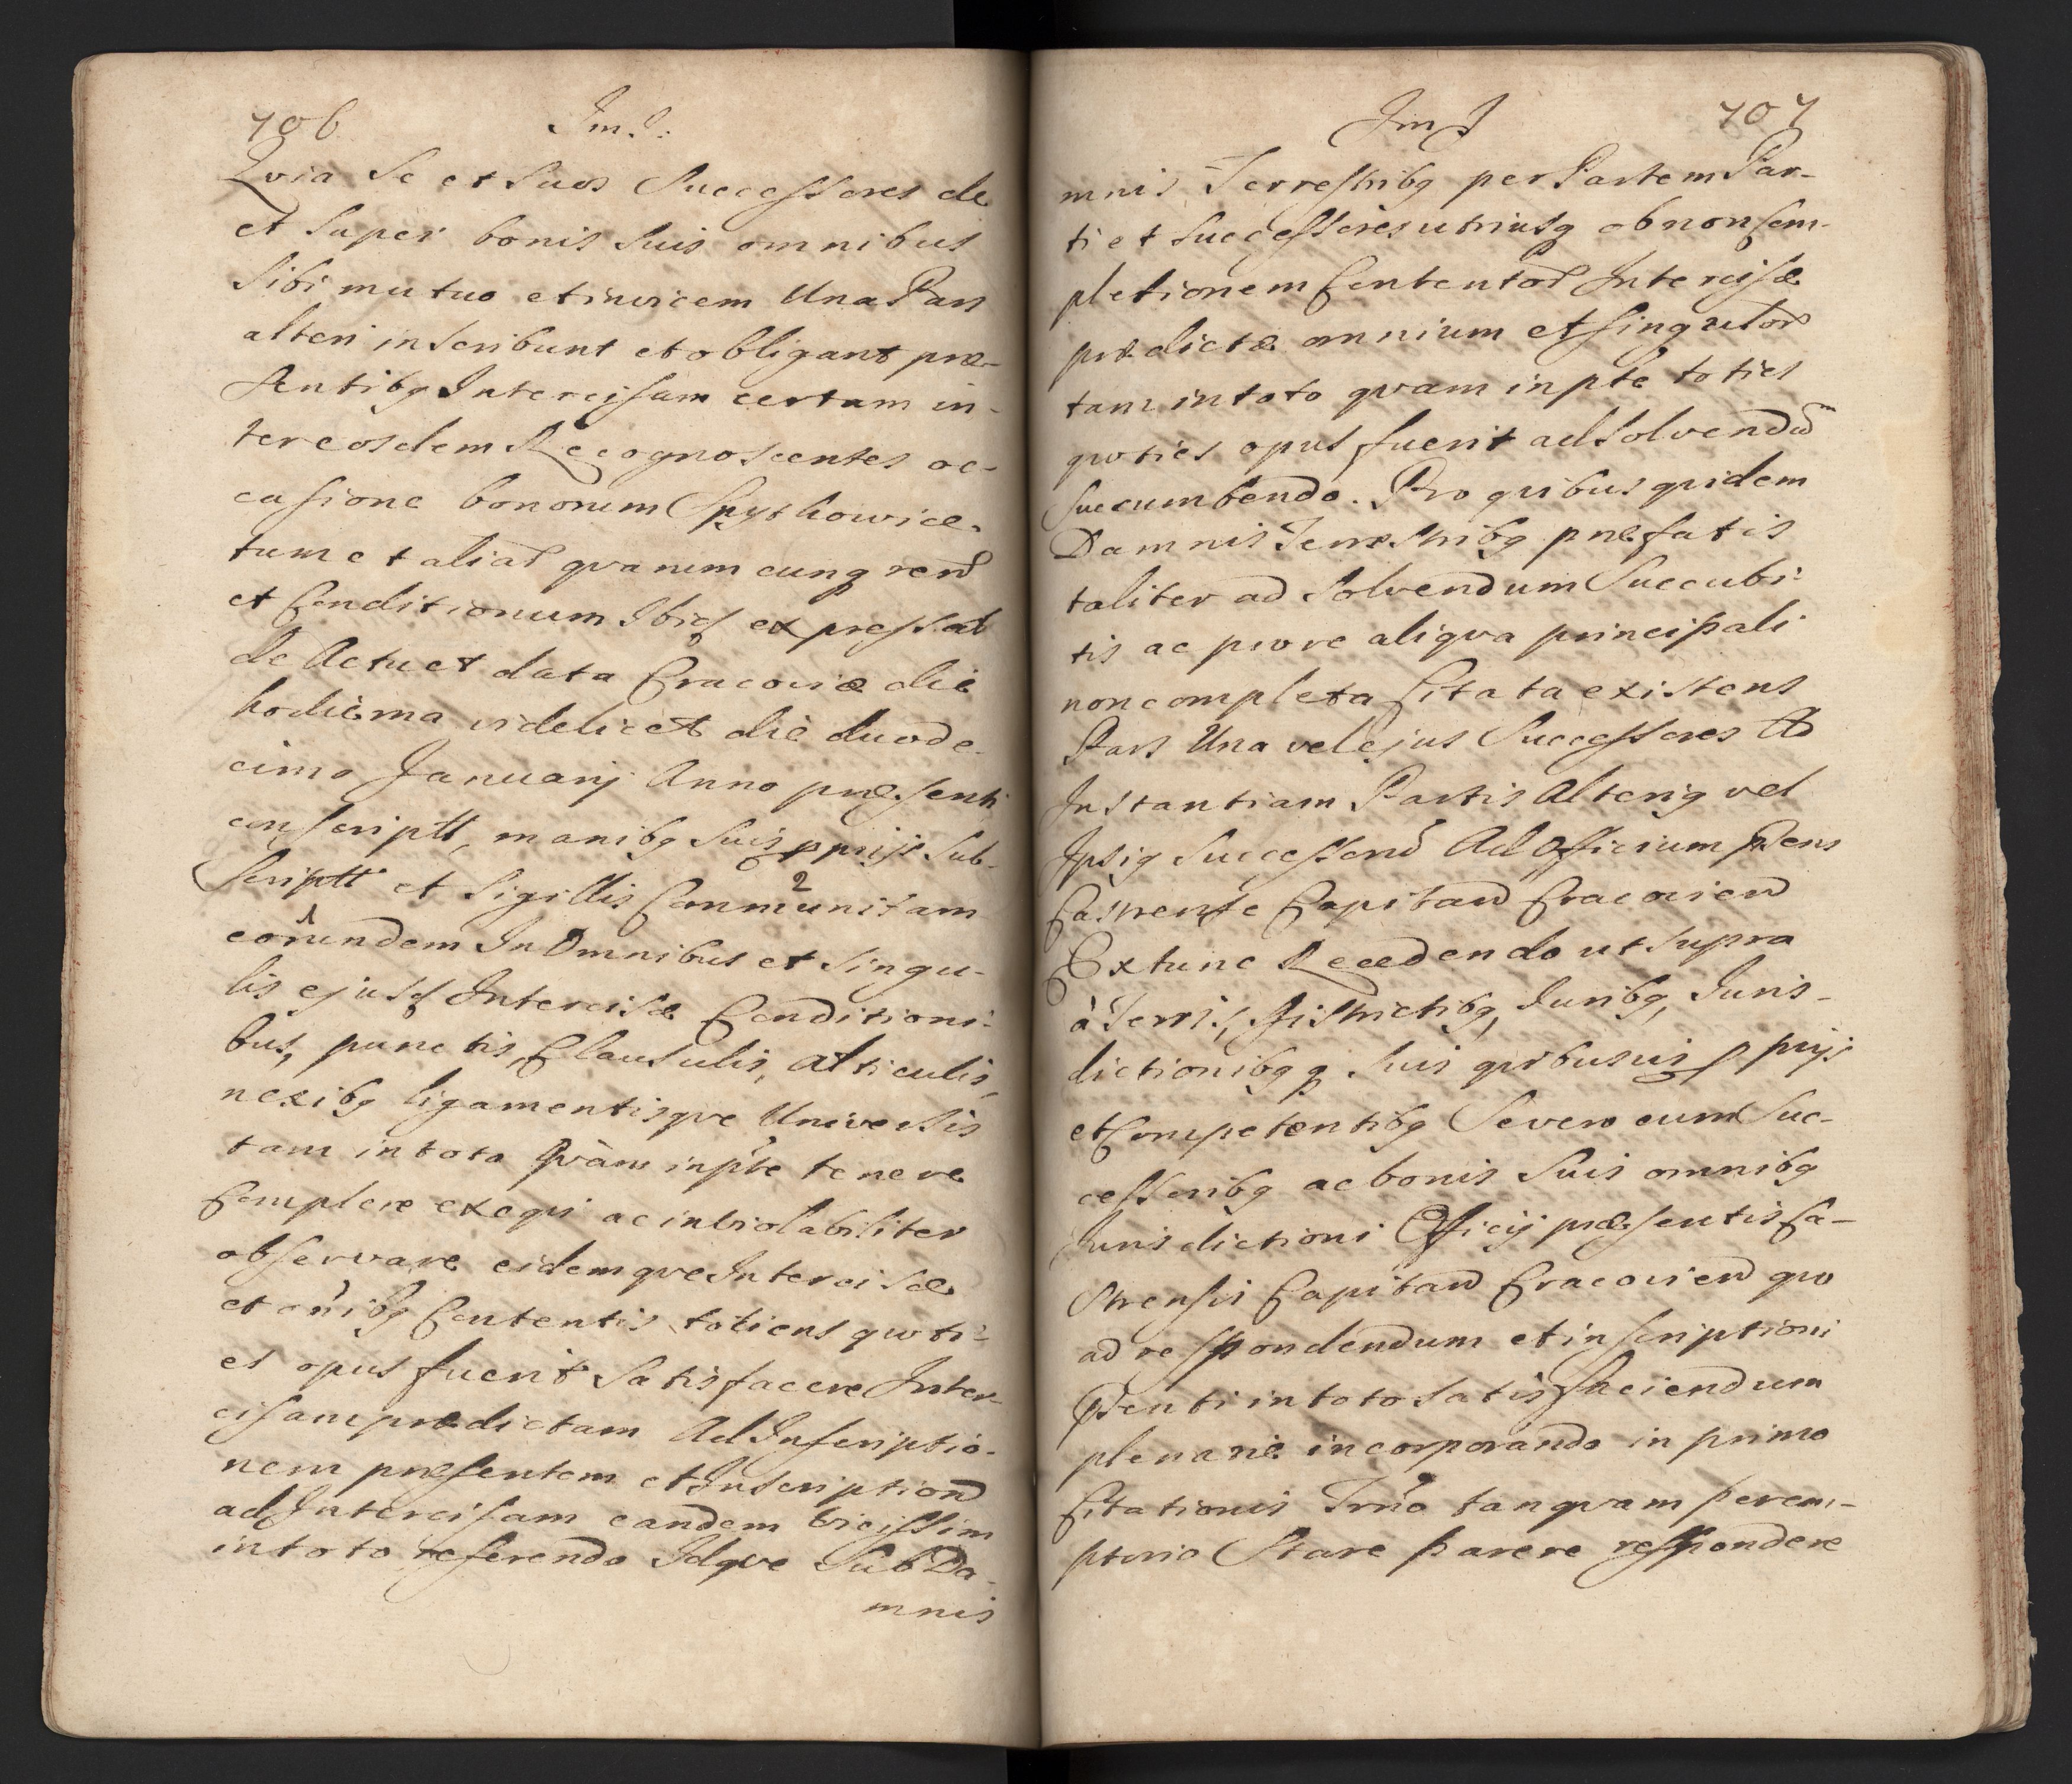 706 Im I.
Qvia Se et Suos Successores de
et Super bonis Suis omnibus
Sibi mutuo et invicem Una Pars
alteri inscribunt et obligant præ-
sentibq Intercisam certam in-
ter eosdem Recognoscentes oc-
casione bonorum Spytkowice-
tum et aliar quarumcunq rerum
et Conditionum Ibid expressar
de Actu et data Cracoviæ die
hodierna videlicet die duode-
cimo Januarij Anno præsenti
conscriptt, manibq Suis pprijs Sub-
scriptt et Sigillis Communitam
2
1
eorundem In Omnibus et Singu-
lis ejusd Intercisæ Conditioni-
bus, punctis, Clausulis, Articulis,
nexibq ligamentisqve Universis
tam in toto Qvàm in pte tenere
Complere exeqvi ac inviolabiliter
observare eidemqve Intercisæ
et onibq Contentis totiens quoti-
es opus fuerit Satisfacere Inter-
cisam prædictam Ad Inscriptio-
nem præsentem et Inscription
ad Intercisam eandem vicissim
in toto referendo Idqve Sub Da-
mnis
Im I 707
mnis Terrestribq per Partem Par-
ti et Successores utriusq ob non Com-
pletionem Contentor Intercisæ
prædictæ omnium et singulor
tam in toto qvam in pte toties
quoties opus fuerit ad Solvendū
succumbendo. Pro qvibus qvidem
Damnis Terrestribq præfatis
taliter ad Solvendum Succubi-
tis ac pro re aliqva principali
non completa Citata existens
Pars Una vel ejus Successores Ad
Instantiam Partis Alteriq vel
Ipsiq Successorū Ad Officium Psens
Castrense Capitan Cracovien
Extunc Recedendo ut supra
à Terris, Districtibq, Iuribq, Iuris-
dictionibqq Suis qvibusvis pprijs
et Competentibq Se vero cum Suc-
cessoribq ac bonis Suis omnibq
Iurisdictioni Officij præsentis Ca-
strensis Capitan Cracovien qvo
ad respondendum et inscriptioni
Psenti in toto Satisfaciendum
plenariè incorporando in primo
Citationis Trno tanqvam perem-
ptorio Stare parere respondere